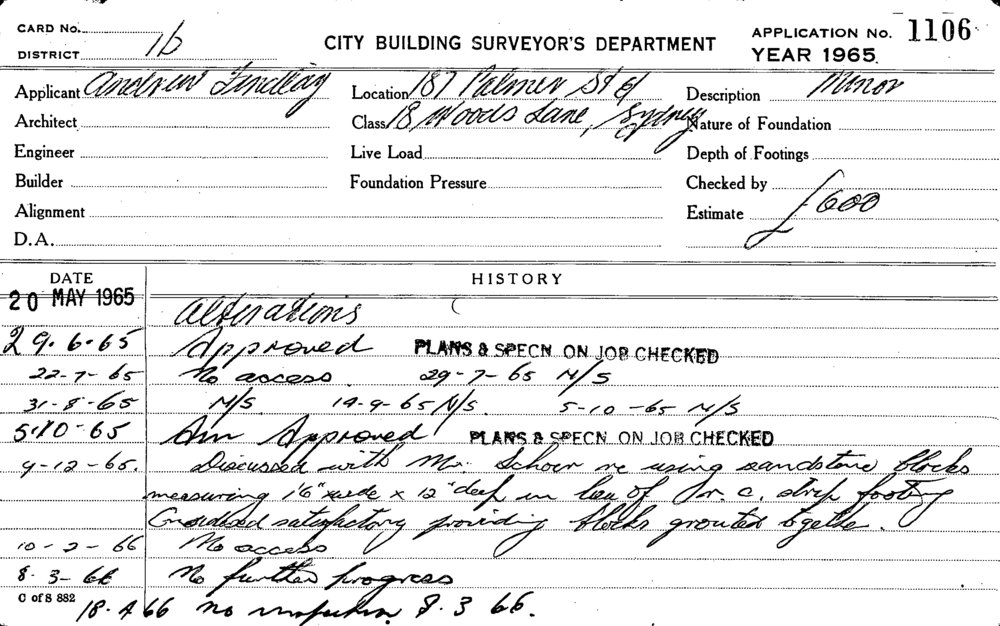 CARD No.
DISTRICT 1b
CITY BUILDING SURVEYOR'S DEPARTMENT
APPLICATION No. 1106
YEAR 1965
Applicant Andrew Findlay Location 187 Palmer St & Description Minor
Architect Class 18 Woods Lane, Sydney Nature of Foundation
Engineer Live Load Depth of Footings
Builder Foundation Pressure Checked by
Alignment Estimate £600
D.A.
DATE HISTORY
20 MAY 1965 Alterations
29.6.65 Approved PLANS & SPECN ON JOB CHECKED
22-7-65 No access. 29-7-65 N/S
31-8-65 N/S 14-9-65 N/S. 5-10-65 N/S
5.10-65 Am Approved PLANS & SPECN ON JOB CHECKED
9-12-65. Discussed with Mr. Schoer re using sandstone blocks
measuring 1'6" wide x 12" deep in lieu of r. c. strip footing
Considered satisfactory providing blocks grouted together.
10-2-66 No access
8.3-66 No further progress
C of S 882
18.4 66 no 8.3 66.